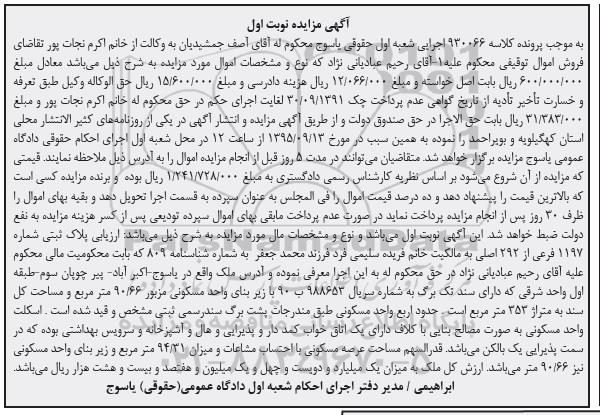 آگهی مزایده نوبت اول
به موجب پرونده کلاسه ۹۳۰۰۶۶ اجرایی شعبه اول حقوقی یاسوج محکوم له آقای آصف جمشیدیان به وکالت از خانم اکرم نجات پور تقاضای
فروش اموال توقیفی محکوم علیه۱- آقای رحیم عبادیانی نژاد که نوع و مشخصات اموال مورد مزایده به شرح ذیل می‌باشد معادل مبلغ
۶۰۰/۰۰۰/۰۰۰ ریال بابت اصل خواسته و مبلغ ۱۲/۰۶۶/۰۰۰ ریال هزینه دادرسی و مبلغ ۱۵/۶۰۰/۰۰۰ ریال حق الوکاله وکیل طبق تعرفه
و خسارت تأخیر تأدیه از تاریخ گواهی عدم پرداخت چک ۳۰/۰۹/۱۳۹۱ لغایت اجرای حکم در حق محکوم له خانم اکرم نجات پور و مبلغ
۳۱/۳۸۳/۰۰۰ ریال بابت حق الاجرا در حق صندوق دولت و از طریق آگهی مزایده و انتشار آگهی در یکی از روزنامه‌های کثیر الانتشار محلی
استان کهگیلویه و بویراحمد را نموده به همین سبب در مورخ ۱۳۹۵/۰۹/۱۳ از ساعت ۱۲ در محل شعبه اول اجرای احکام حقوقی دادگاه
عمومی یاسوج مزایده برگزار خواهد شد. متقاضیان می‌توانند در مدت ۵ روز قبل از انجام مزایده اموال را به آدرس ذیل ملاحظه نمایند. قیمتی
که مزایده از آن شروع می‌شود بر اساس نظریه کارشناس رسمی دادگستری به مبلغ ۱/۲۴۱/۷۲۸/۰۰۰ ریال بوده و برنده مزایده کسی است
که بالاترین قیمت را پیشنهاد دهد و ده درصد قیمت اموال را فی المجلس به عنوان سپرده به قسمت اجرا تحویل دهد و بقیه بهای اموال را
ظرف ۳۰ روز پس از انجام مزایده پرداخت نماید در صورت عدم پرداخت مابقی بهای اموال سپرده تودیعی پس از کسر هزینه مزایده به نفع
دولت ضبط خواهد شد. این آگهی نوبت اول می‌باشد و نوع و مشخصات مال مورد مزایده به شرح ذیل می‌باشد: ارزیابی پلاک ثبتی شماره
۱۱۹۷ فرعی از ۲۹۲ اصلی به مالکیت خانم فریده سلیمی فرد فرزند محمد جعفر به شماره شناسنامه ۸۰۹ که بابت محکومیت مالی محکوم
علیه آقای رحیم عبادیانی نژاد در حق محکوم له به این اجرا معرفی نموده و آدرس ملک واقع در یاسوج-اکبر آباد- پیر چوپان سوم-طبقه
اول واحد شرقی که دارای سند تک برگ به شماره سریال ۹۸۸۶۵۳ ب ۹۰ با زیر بنای واحد مسکونی مزبور ۹۰/۶۶ متر مربع و مساحت کل
سند به متراژ ۳۵۳ متر مربع است. حدود اربع واحد مسکونی طبق مندرجات پشت برگ سندرسمی ثبتی مشخص و قید شده است . اسکلت
واحد مسکونی به صورت مصالح بنایی با کلاف دارای یک اتاق خواب کمد دار و پذیرایی و هال و آشپزخانه و سرویس بهداشتی بوده که در
سمت پذیرایی یک بالکن می‌باشد. قدرالسهم مساحت عرصه مسکونی با احتساب مشاعات و میزان ۹۴/۳۱ متر مربع و زیر بنای واحد مسکونی
نیز ۹۰/۶۶ متر می‌باشد. ارزش کل ملک به میزان یک میلیارد و دویست و چهل و یک میلیون و هفتصد و بیست و هشت هزار ریال می‌باشد.
ابراهیمی / مدیر دفتر اجرای احکام شعبه اول دادگاه عمومی(حقوقی) یاسوج
ParsNamadData
۰۲۱-۸۸۳۴۹۶۷۰-۵